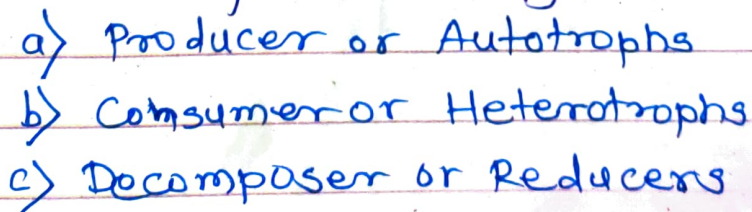 a) Producer or Autotrophs
b) Comsumer or Heterotrophs
c) Docomposer or Reducers